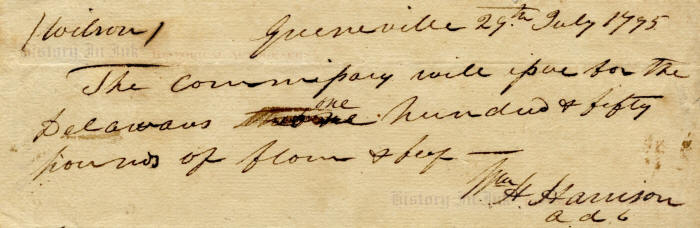 (Wilson) Greeneville 29th July 1795
History In Ink
The Commissary will issue for the
one
Delawares hundred & fifty
pounds of flour & beef —
Wm H. Harrison
History In Ink
a d c